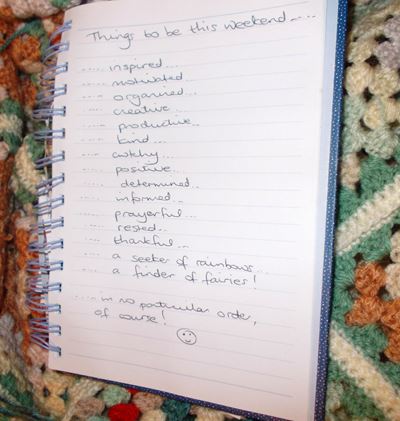 Things to be this weekend.....
..... inspired...
..... motivated...
.... organised...
.... creative...
..... productive..
..... kind...
..... crotchy...
..... positive..
..... determined...
..... informed...
..... prayerful...
..... rested..
.... thankful...
.... a seeker of rainbows...
.... a finder of fairies!
..... in no particular order,
of course!